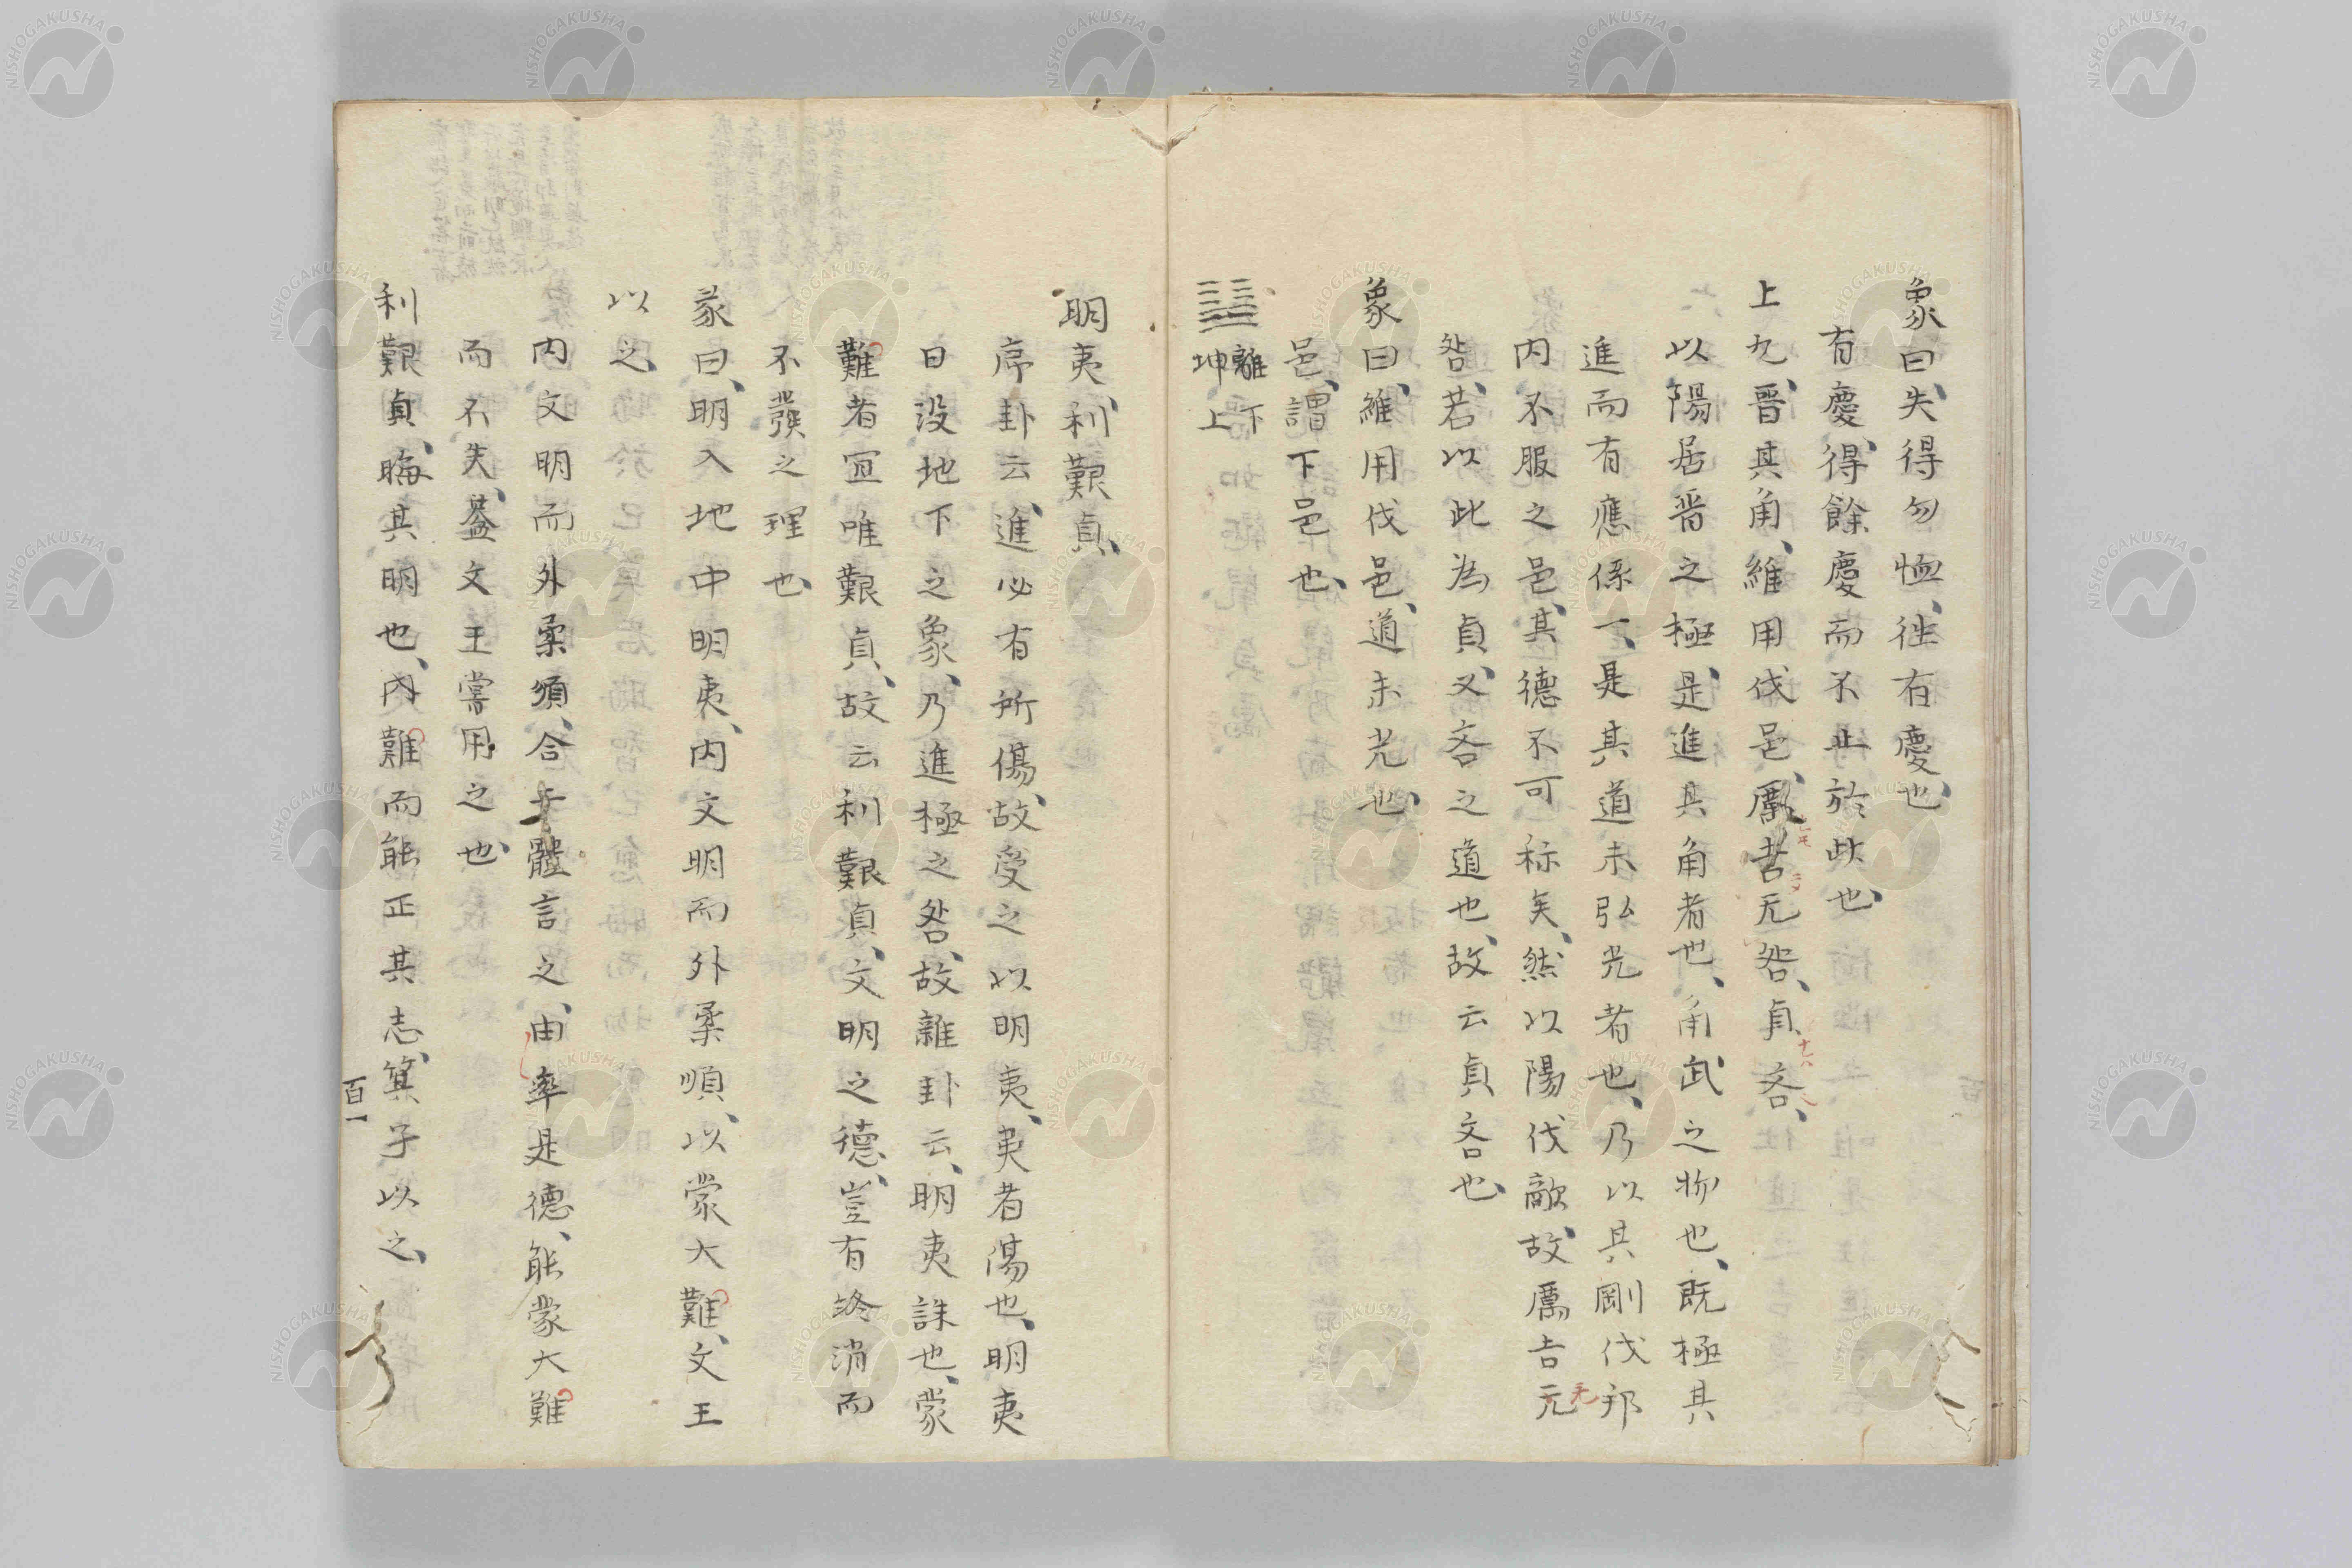 象曰、失得勿恤、往有慶也、
有慶、得餘慶而不止於此也、
上九、晋其角、維用伐邑、厲吉无咎、貞吝、
以陽居晋之極、是進其角者也、角武之物也、既極其
進而有應係一、是其道未弘光者也、乃以其剛伐邦
内不服之邑、其德不可称矣、然以陽伐敵、故厲吉元
无
咎、若以此為貞、又吝之道也、故云貞吝也、
象曰、維用伐邑、道未光也、
邑、謂下邑也、
離下
坤上
明夷、利艱貞、
序卦云、進必有所傷、故受之以明夷、夷者傷也、明夷
日没地下之象、乃進極之咎、故雜卦云、明夷誅也、蒙
難者宜唯艱貞、故云利艱貞、文明之德、豈有終消而
不發之理也、
彖曰、明入地中明夷、内文明而外柔順、以蒙大難、文王
以之、
内文明而外柔順、合二體言之、由率是德、能蒙大難
而不失、蓋文王嘗用之也、
利艱貞、晦其明也、内難而能正其志、箕子以之、
百一